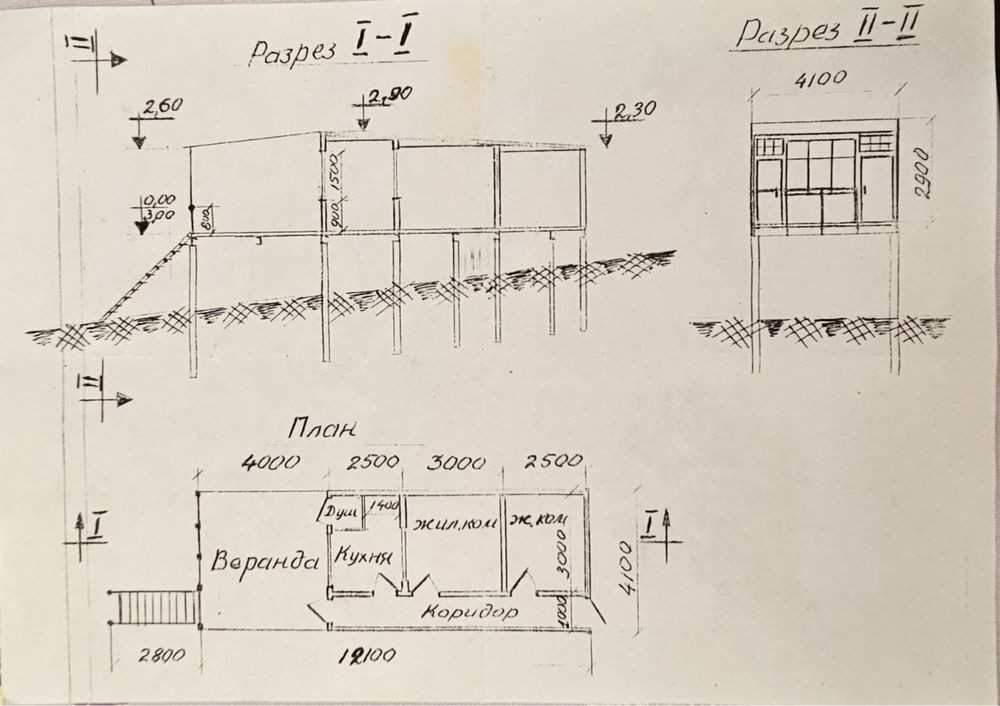 Разрез I-I
Разрез II-II
II
4100
2,60
2,90
2,30
1500
2900
0,00
3,00
800
900
II
План
4000 2500 3000 2500
Душ 1400
жил.ком ж.ком
I
I
Веранда Кухня
3000
4100
Коридор
1000
2800 12100